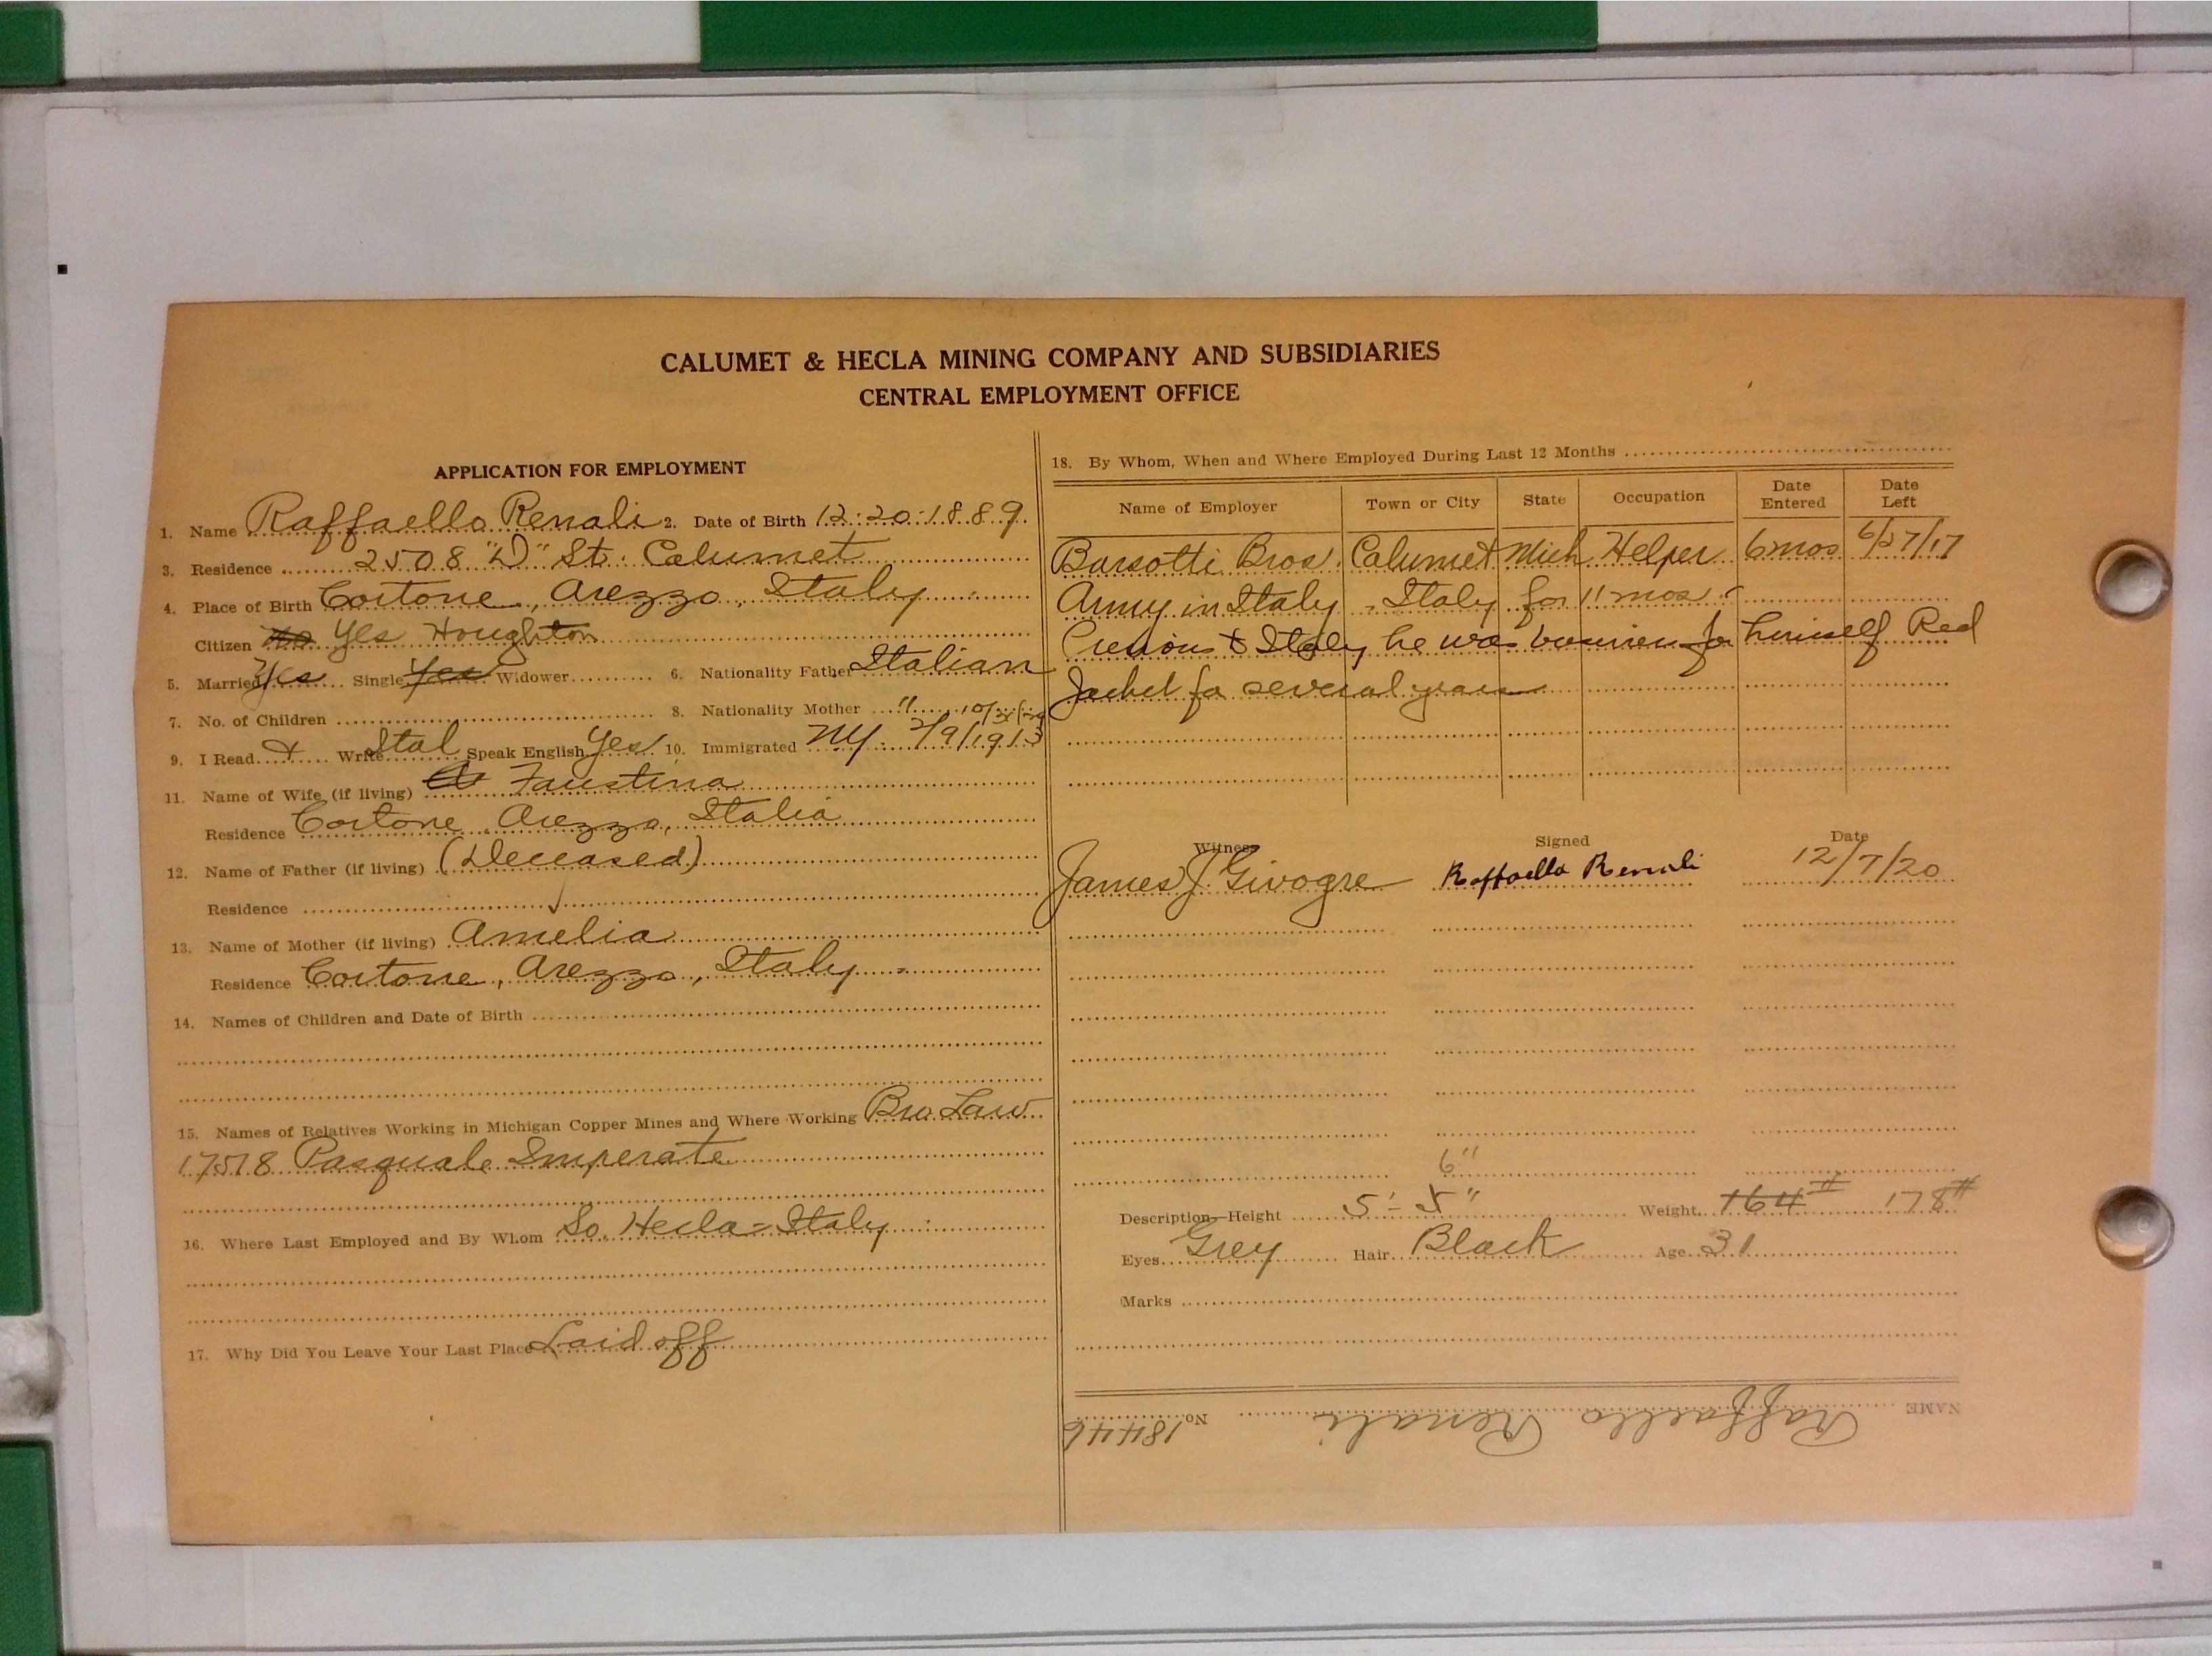 CALUMET & HECLA MINING COMPANY AND SUBSIDIARIES
CENTRAL EMPLOYMENT OFFICE
APPLICATION FOR EMPLOYMENT
1. Name Raffaello Renali 2. Date of Birth 12-20-1889
3. Residence 2508 "D" St. Calumet
4. Place of Birth Cortone, Arezzo, Italy
Citizen Yes Houghton
5. Married Yes Single Yes Widower 6. Nationality Father Italian
7. No. of Children 8. Nationality Mother "
9. I Read & Write Ital Speak English Yes 10. Immigrated NY. 2/9/1913
11. Name of Wife (if living) Faustina
Residence Cortone, Arezzo, Italia
12. Name of Father (if living) (Deceased)
Residence
13. Name of Mother (if living) Amelia
Residence Cortone, Arezzo, Italy
14. Names of Children and Date of Birth
15. Names of Relatives Working in Michigan Copper Mines and Where Working Bro Law
17518 Pasquale Imperate
16. Where Last Employed and By Whom So. Hecla = Italy
17. Why Did You Leave Your Last Place Laid off
18. By Whom, When and Where Employed During Last 12 Months
Name of Employer Town or City State Occupation Date Entered Date Left
Barsotti Bros. Calumet Mich Helper 6 mos 6/27/17
Army in Italy, Italy for 11 mos.
Previous to Italy he was business for himself Red
Jacket for several years
Witness Signed Date
James J. Givogre Raffaello Renali 12/7/20
6"
Description—Height 5'-5" Weight 164# 178#
Eyes Grey Hair Black Age 31
Marks
NAME Raffaello Renali No. 18446